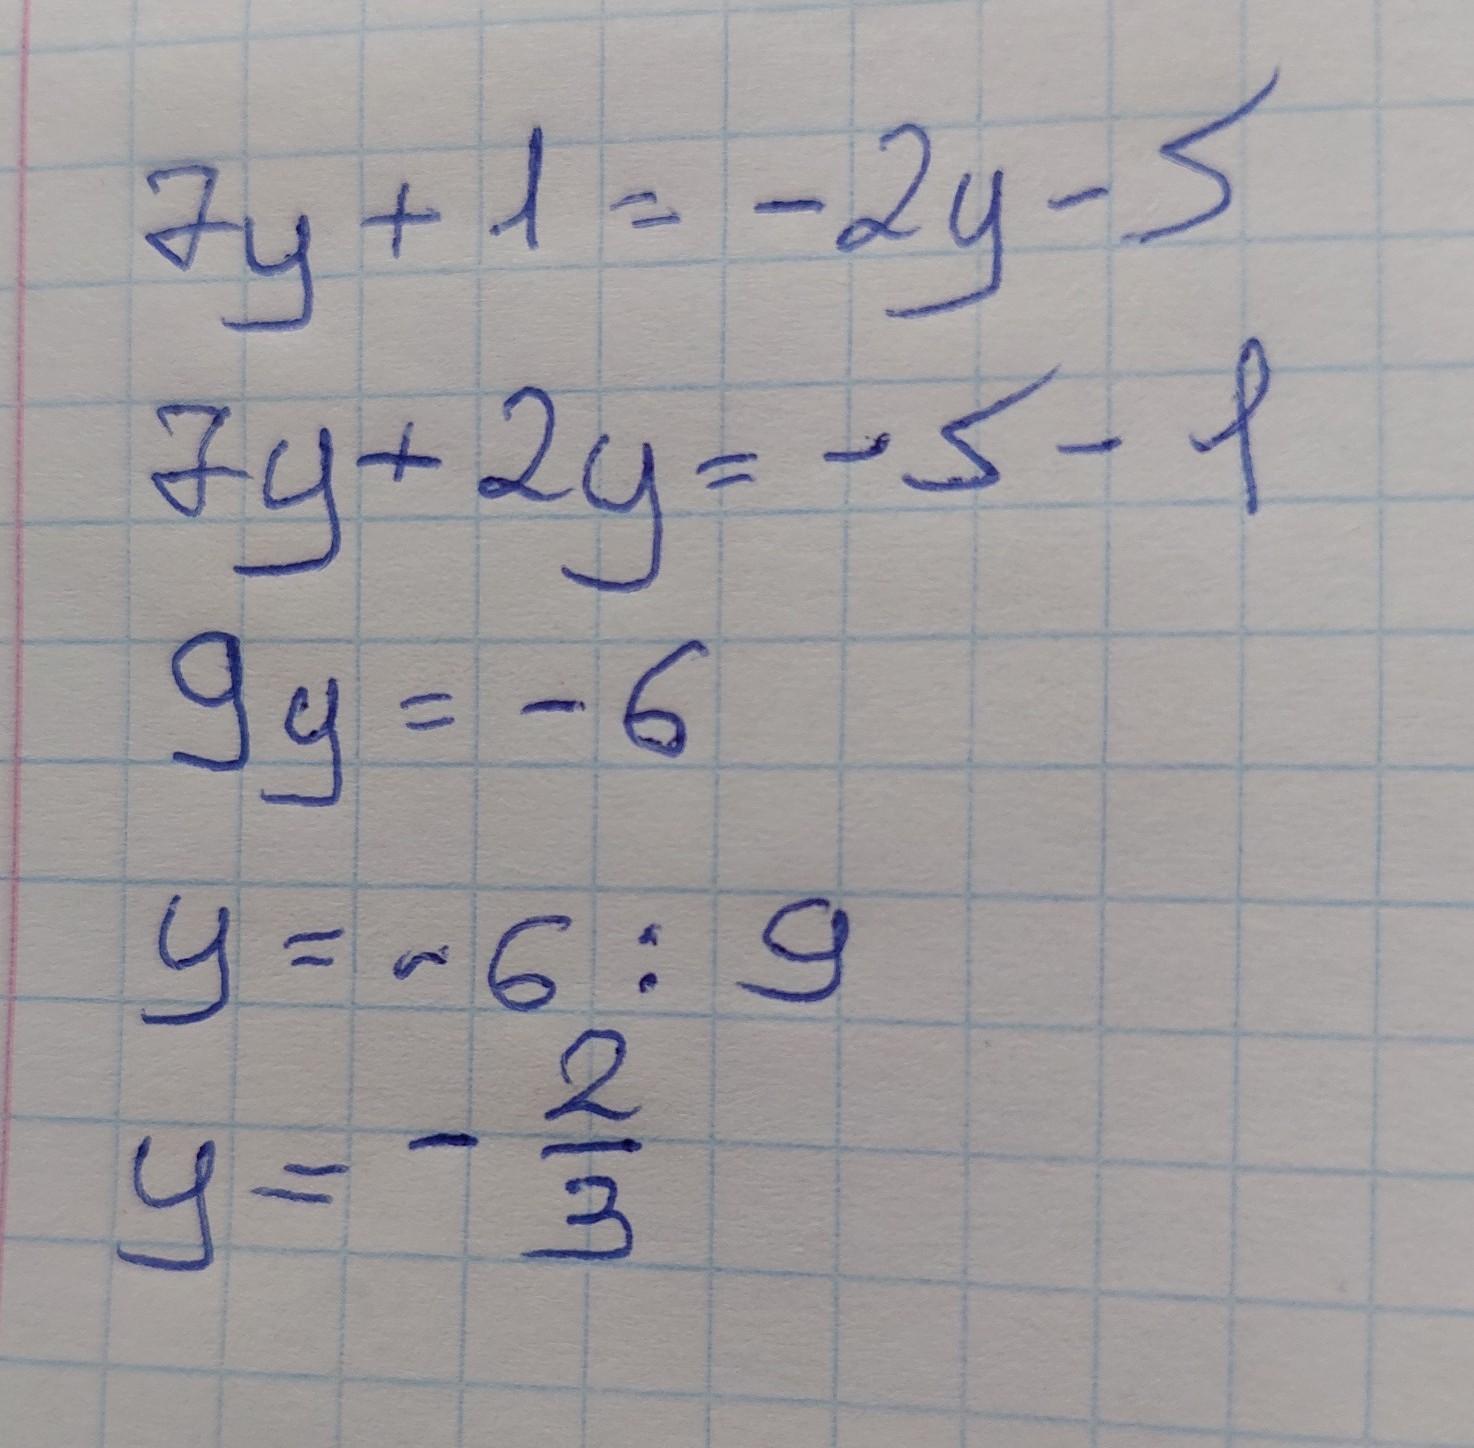 7y + 1 = - 2y - 5
7y + 2y = - 5 - 1
9y = - 6
y = - 6 : 9
y = - 2/3